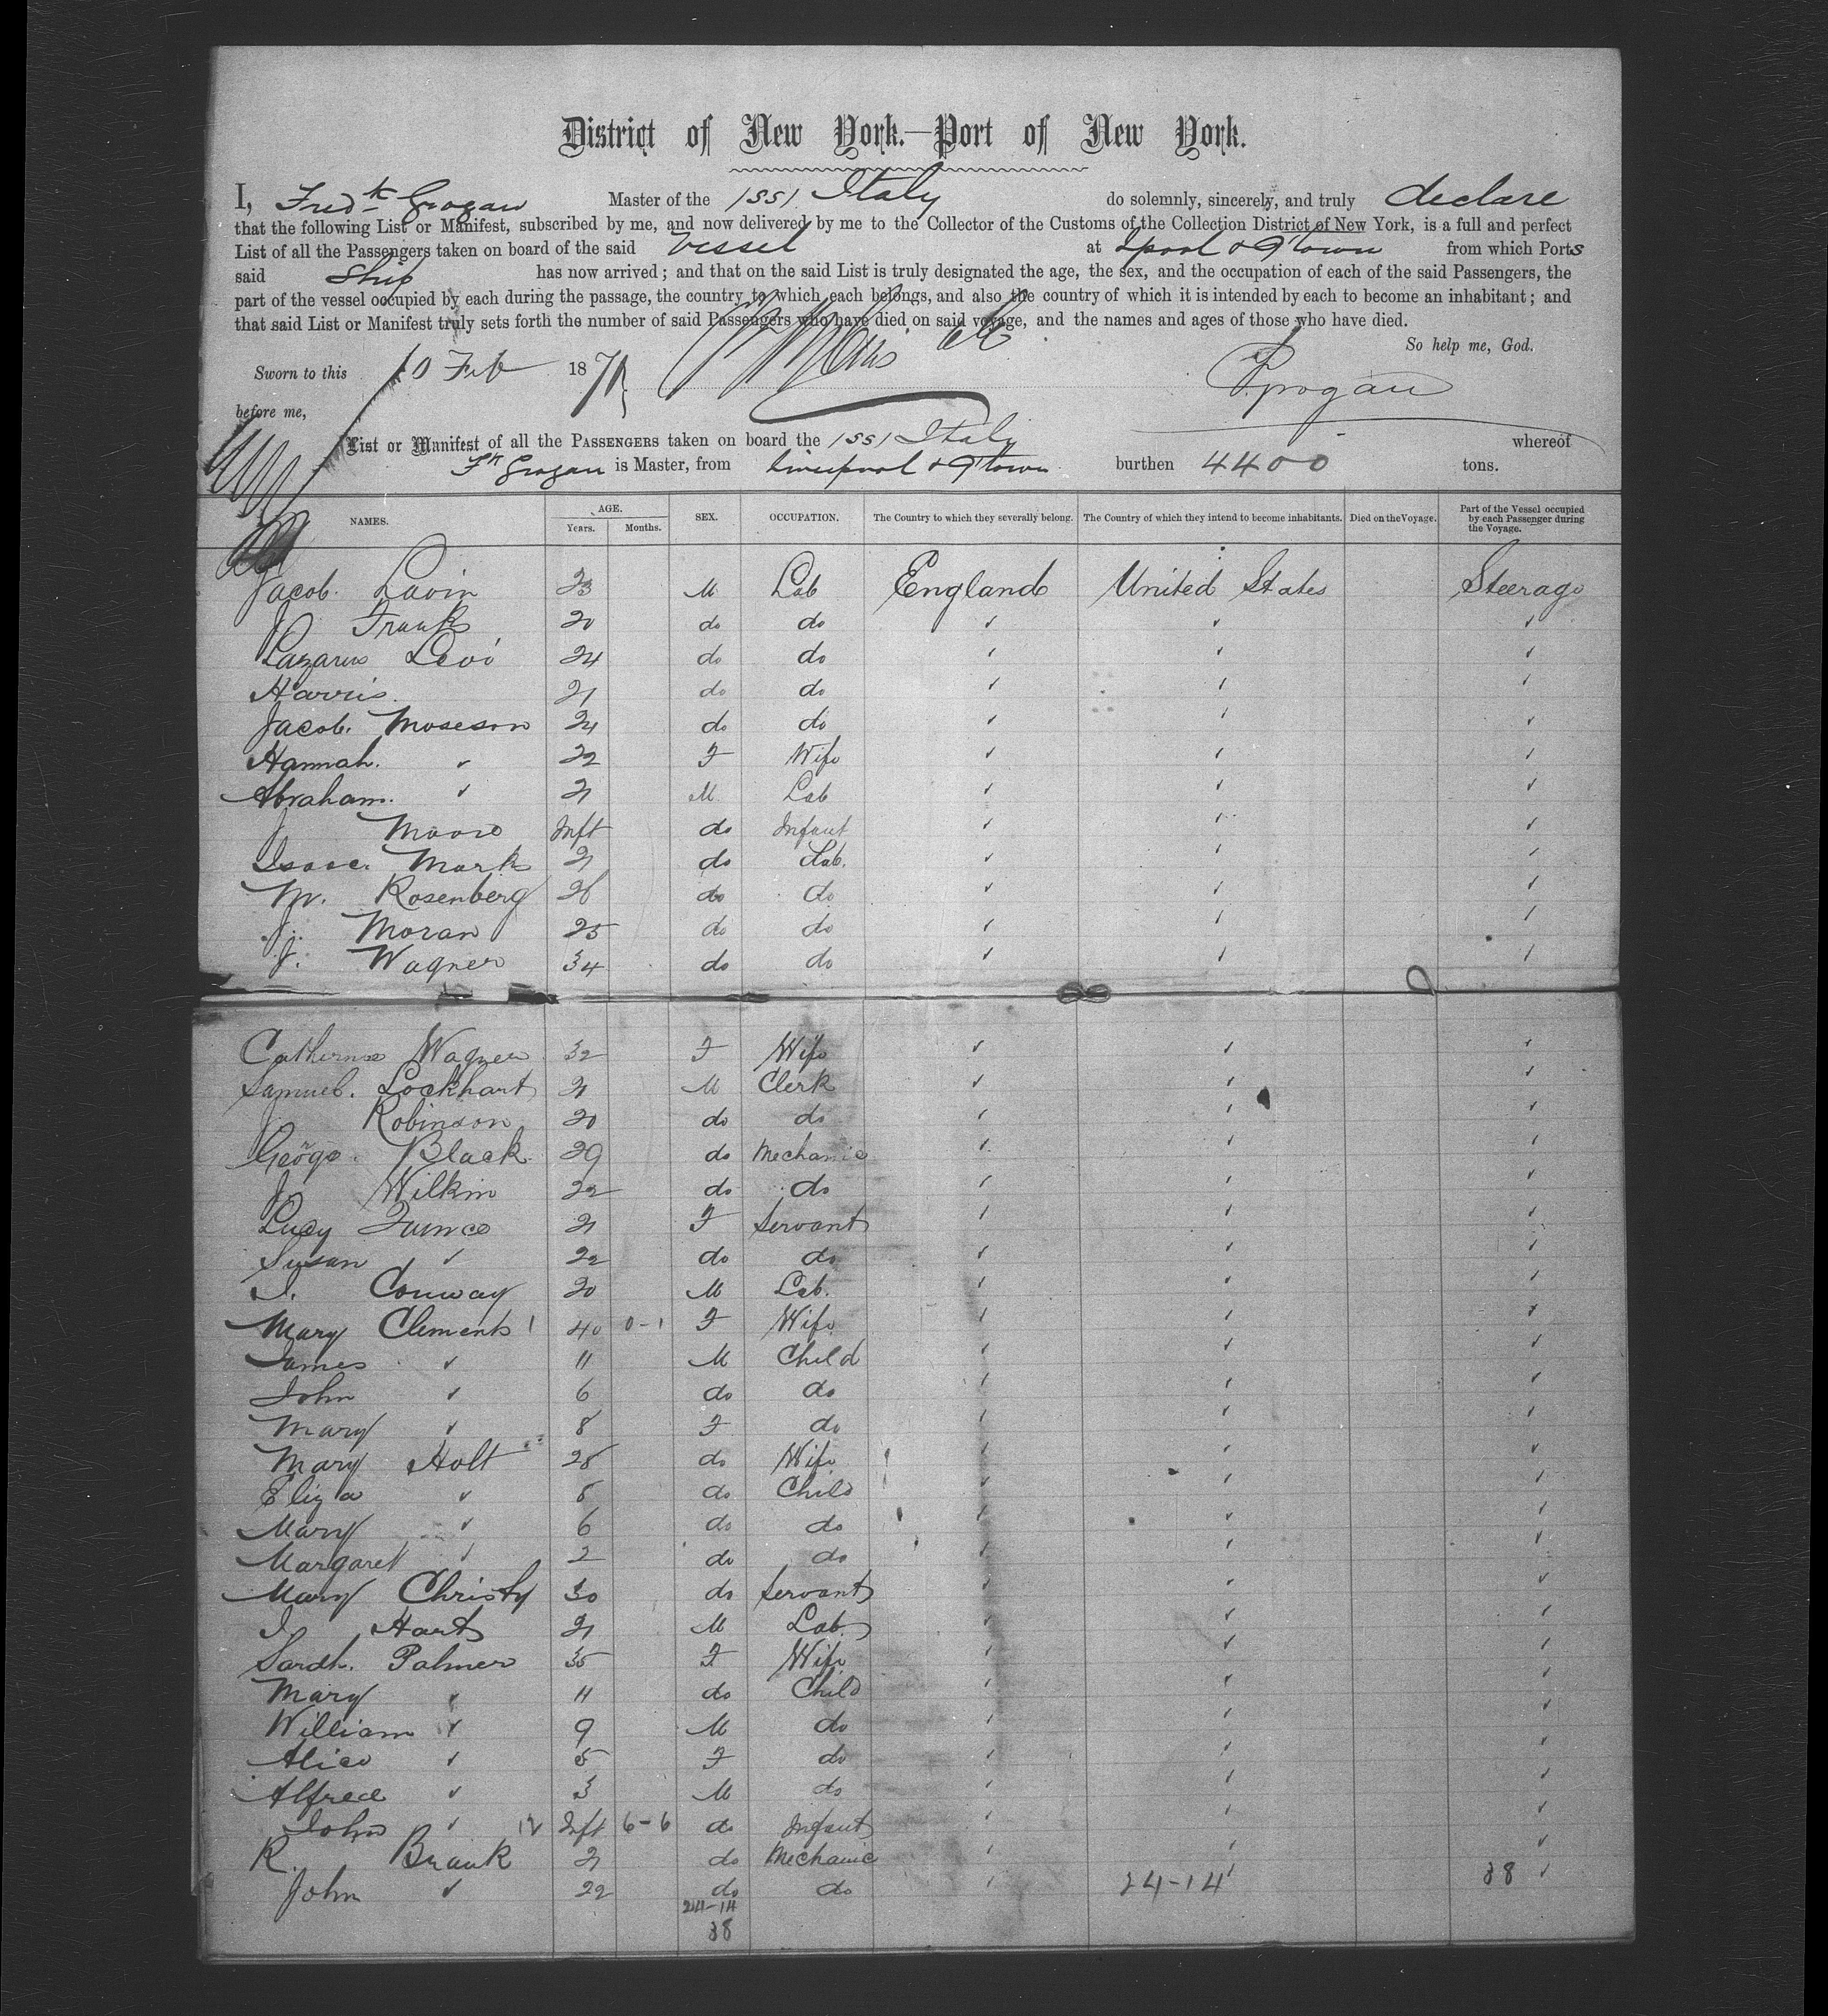 District of New York.—Port of New York.
I, Fredk Grogan Master of the 1SS1 Italy do solemnly, sincerely, and truly declare
that the following List or Manifest, subscribed by me, and now delivered by me to the Collector of the Customs of the Collection District of New York, is a full and perfect
List of all the Passengers taken on board of the said Vessel at Lpool & Qtown from which Ports
said Ship has now arrived; and that on the said List is truly designated the age, the sex, and the occupation of each of the said Passengers, the
part of the vessel occupied by each during the passage, the country to which each belongs, and also the country of which it is intended by each to become an inhabitant; and
that said List or Manifest truly sets forth the number of said Passengers who have died on said voyage, and the names and ages of those who have died.
So help me, God.
Sworn to this 10 Feb 187 F. Grogan
before me,
List or Manifest of all the PASSENGERS taken on board the 1SS1 Italy whereof
Fk Grogan is Master, from Liverpool & Qtown burthen 4400 tons.
NAMES. AGE. Years. Months. SEX. OCCUPATION. The Country to which they severally belong. The Country of which they intend to become inhabitants. Died on the Voyage. Part of the Vessel occupied by each Passenger during the Voyage.
Jacob. Lavin 23 M Lab England United States Steerage
J Frank 20 do do ✓ ✓ ✓
Lazarus Levi 24 do do ✓ ✓ ✓
Harris 21 do do ✓ ✓ ✓
Jacob. Moseson 24 do do ✓ ✓ ✓
Hannah. ✓ 22 F Wife ✓ ✓ ✓
Abraham. ✓ 21 M Lab ✓ ✓ ✓
J Moore Inft do Infant ✓ ✓ ✓
Isaac. Mark 21 do Lab. ✓ ✓ ✓
M. Rosenberg 26 do do ✓ ✓ ✓
J. Moran 25 do do ✓ ✓ ✓
J. Wagner 34 do do ✓ ✓ ✓
Catherine Wagner 32 F Wife ✓ ✓ ✓
Samuel. Lockhart 21 M Clerk ✓ ✓ ✓
J Robinson 20 do do ✓ ✓ ✓
George. Black 29 do Mechanic ✓ ✓ ✓
J. Wilkin 22 do do ✓ ✓ ✓
Lucy 21 F Servant ✓ ✓ ✓
Susan ✓ 22 do do ✓ ✓ ✓
I. Conway 20 M Lab. ✓ ✓ ✓
Mary Clements 1 40 0-1 F Wife ✓ ✓ ✓
James ✓ 11 M Child ✓ ✓ ✓
John ✓ 6 do do ✓ ✓ ✓
Mary ✓ 8 F do ✓ ✓ ✓
Mary Holt 28 do Wife ✓ ✓ ✓
Eliza ✓ 8 do Child ✓ ✓ ✓
Mary ✓ 6 do do ✓ ✓ ✓
Margaret ✓ 2 do do ✓ ✓ ✓
Mary Christy 30 do Servant ✓ ✓ ✓
I Hart 21 M Lab. ✓ ✓ ✓
Sarah. Palmer 35 F Wife ✓ ✓ ✓
Mary ✓ 11 do Child ✓ ✓ ✓
William ✓ 9 M do ✓ ✓ ✓
Alice ✓ 5 F do ✓ ✓ ✓
Alfred ✓ 3 M do ✓ ✓ ✓
John ✓ 12 Inft 6-6 do Infant ✓ ✓ ✓
R. Brank 21 do Mechanic ✓ ✓ ✓
John ✓ 22 do do ✓ 24-14 ✓ 38 ✓
24-14
38